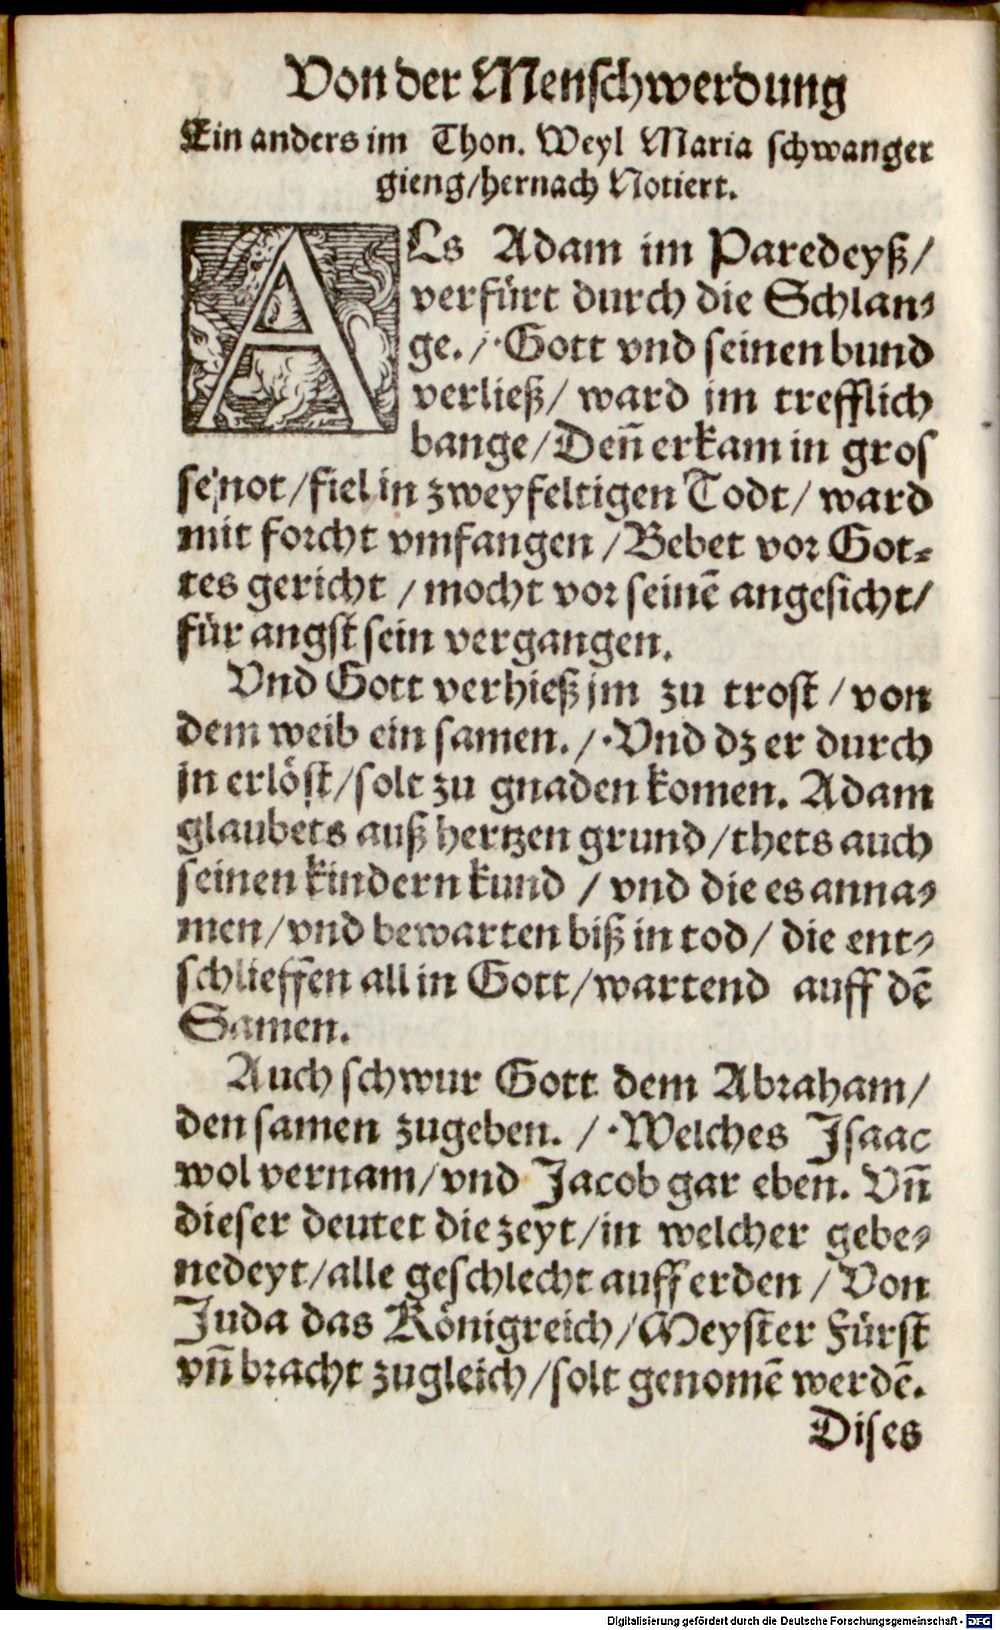 Von der Menschwerdung
Ein anders im Thon. Weyl Maria schwanger
gieng/hernach Notiert.
ALs Adam im Paredeyß/
verfürt durch die Schlan⸗
ge. /·Gott vnd seinen bund
verließ/ ward jm trefflich
bange/Deñ er kam in gros
se not/fiel in zweyfeltigen Todt/ ward
mit forcht vmfangen /Bebet vor Got⸗
tes gericht /mocht vor seinē angesicht/
für angst sein vergangen.
Vnd Gott verhieß jm zu trost /von
dem weib ein samen. /·Vnd dz er durch
jn erlöst/solt zu gnaden komen. Adam
glaubets auß hertzen grund/thets auch
seinen kindern kund /vnd die es anna⸗
men/vnd bewarten biß in tod/ die ent⸗
schlieffen all in Gott/wartend auff dē
Samen.
Auch schwur Gott dem Abraham/
den samen zugeben. /·Welches Jsaac
wol vernam/vnd Jacob gar eben. Vñ
dieser deutet die zeyt/in welcher gebe⸗
nedeyt/alle geschlecht auff erden /Von
Juda das Königreich/Meyster Fürst
vñ bracht zugleich/solt genomē werdē.
Dises
Digitalisierung gefördert durch die Deutsche Forschungsgemeinschaft - DFG